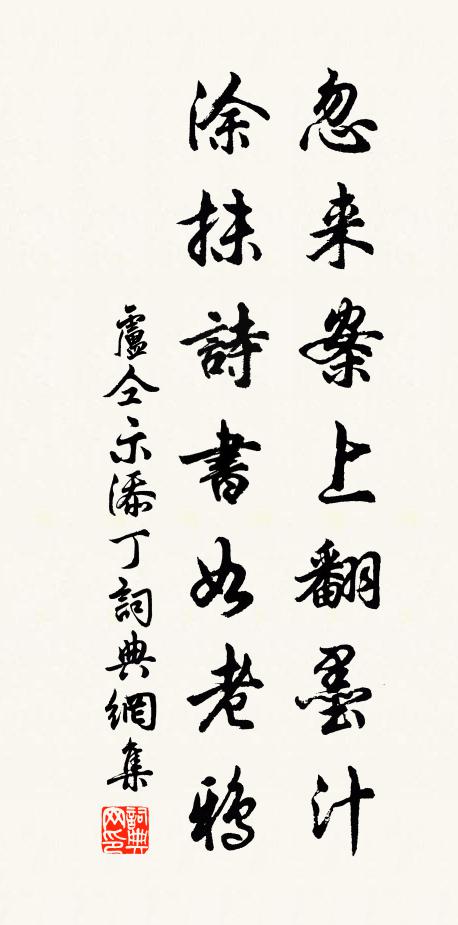 忽来案上翻墨汁
涂抹詩書如老鴉
盧仝示添丁詞典網集
詞典网印